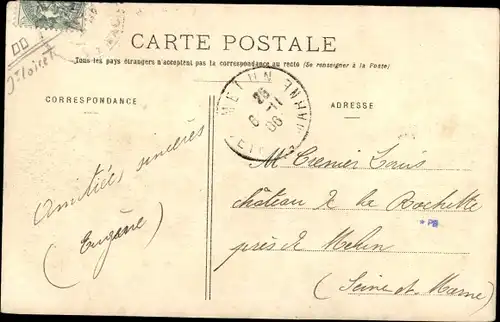 CARTE POSTALE
Tous les pays étrangers n'acceptent pas la correspondance au recto (Se renseigner à la Poste)
CORRESPONDANCE
ADRESSE
MELUN
SEINE ET MARNE
Amitiés sincères
(Eugène)
Mr Crenier Louis
château de la Rochette
près de Melun
(Seine-et-Marne)
PB